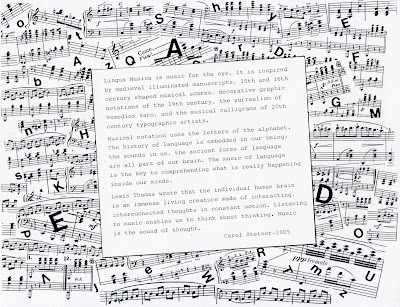 Lingua Musica is music for the eye. It is inspired
by medieval illuminated manuscripts, 15th and 16th
century shaped musical scores, decorative graphic
notations of the 19th century, the surrealism of
Remedios Varo, and the musical calligrams of 20th
century typographic artists.
Musical notation uses the letters of the alphabet.
The history of language is embedded in our being;
the sounds in us, the ancient forms of language
are all part of our brain. The music of language
is the key to comprehending what is really happening
inside our minds.
Lewis Thomas wrote that the individual human brain
is an immense living creature made of interacting,
interconnected thoughts in constant motion. Listening
to music enables us to think about thinking. Music
is the sound of thought.
Carol Stetser-2005